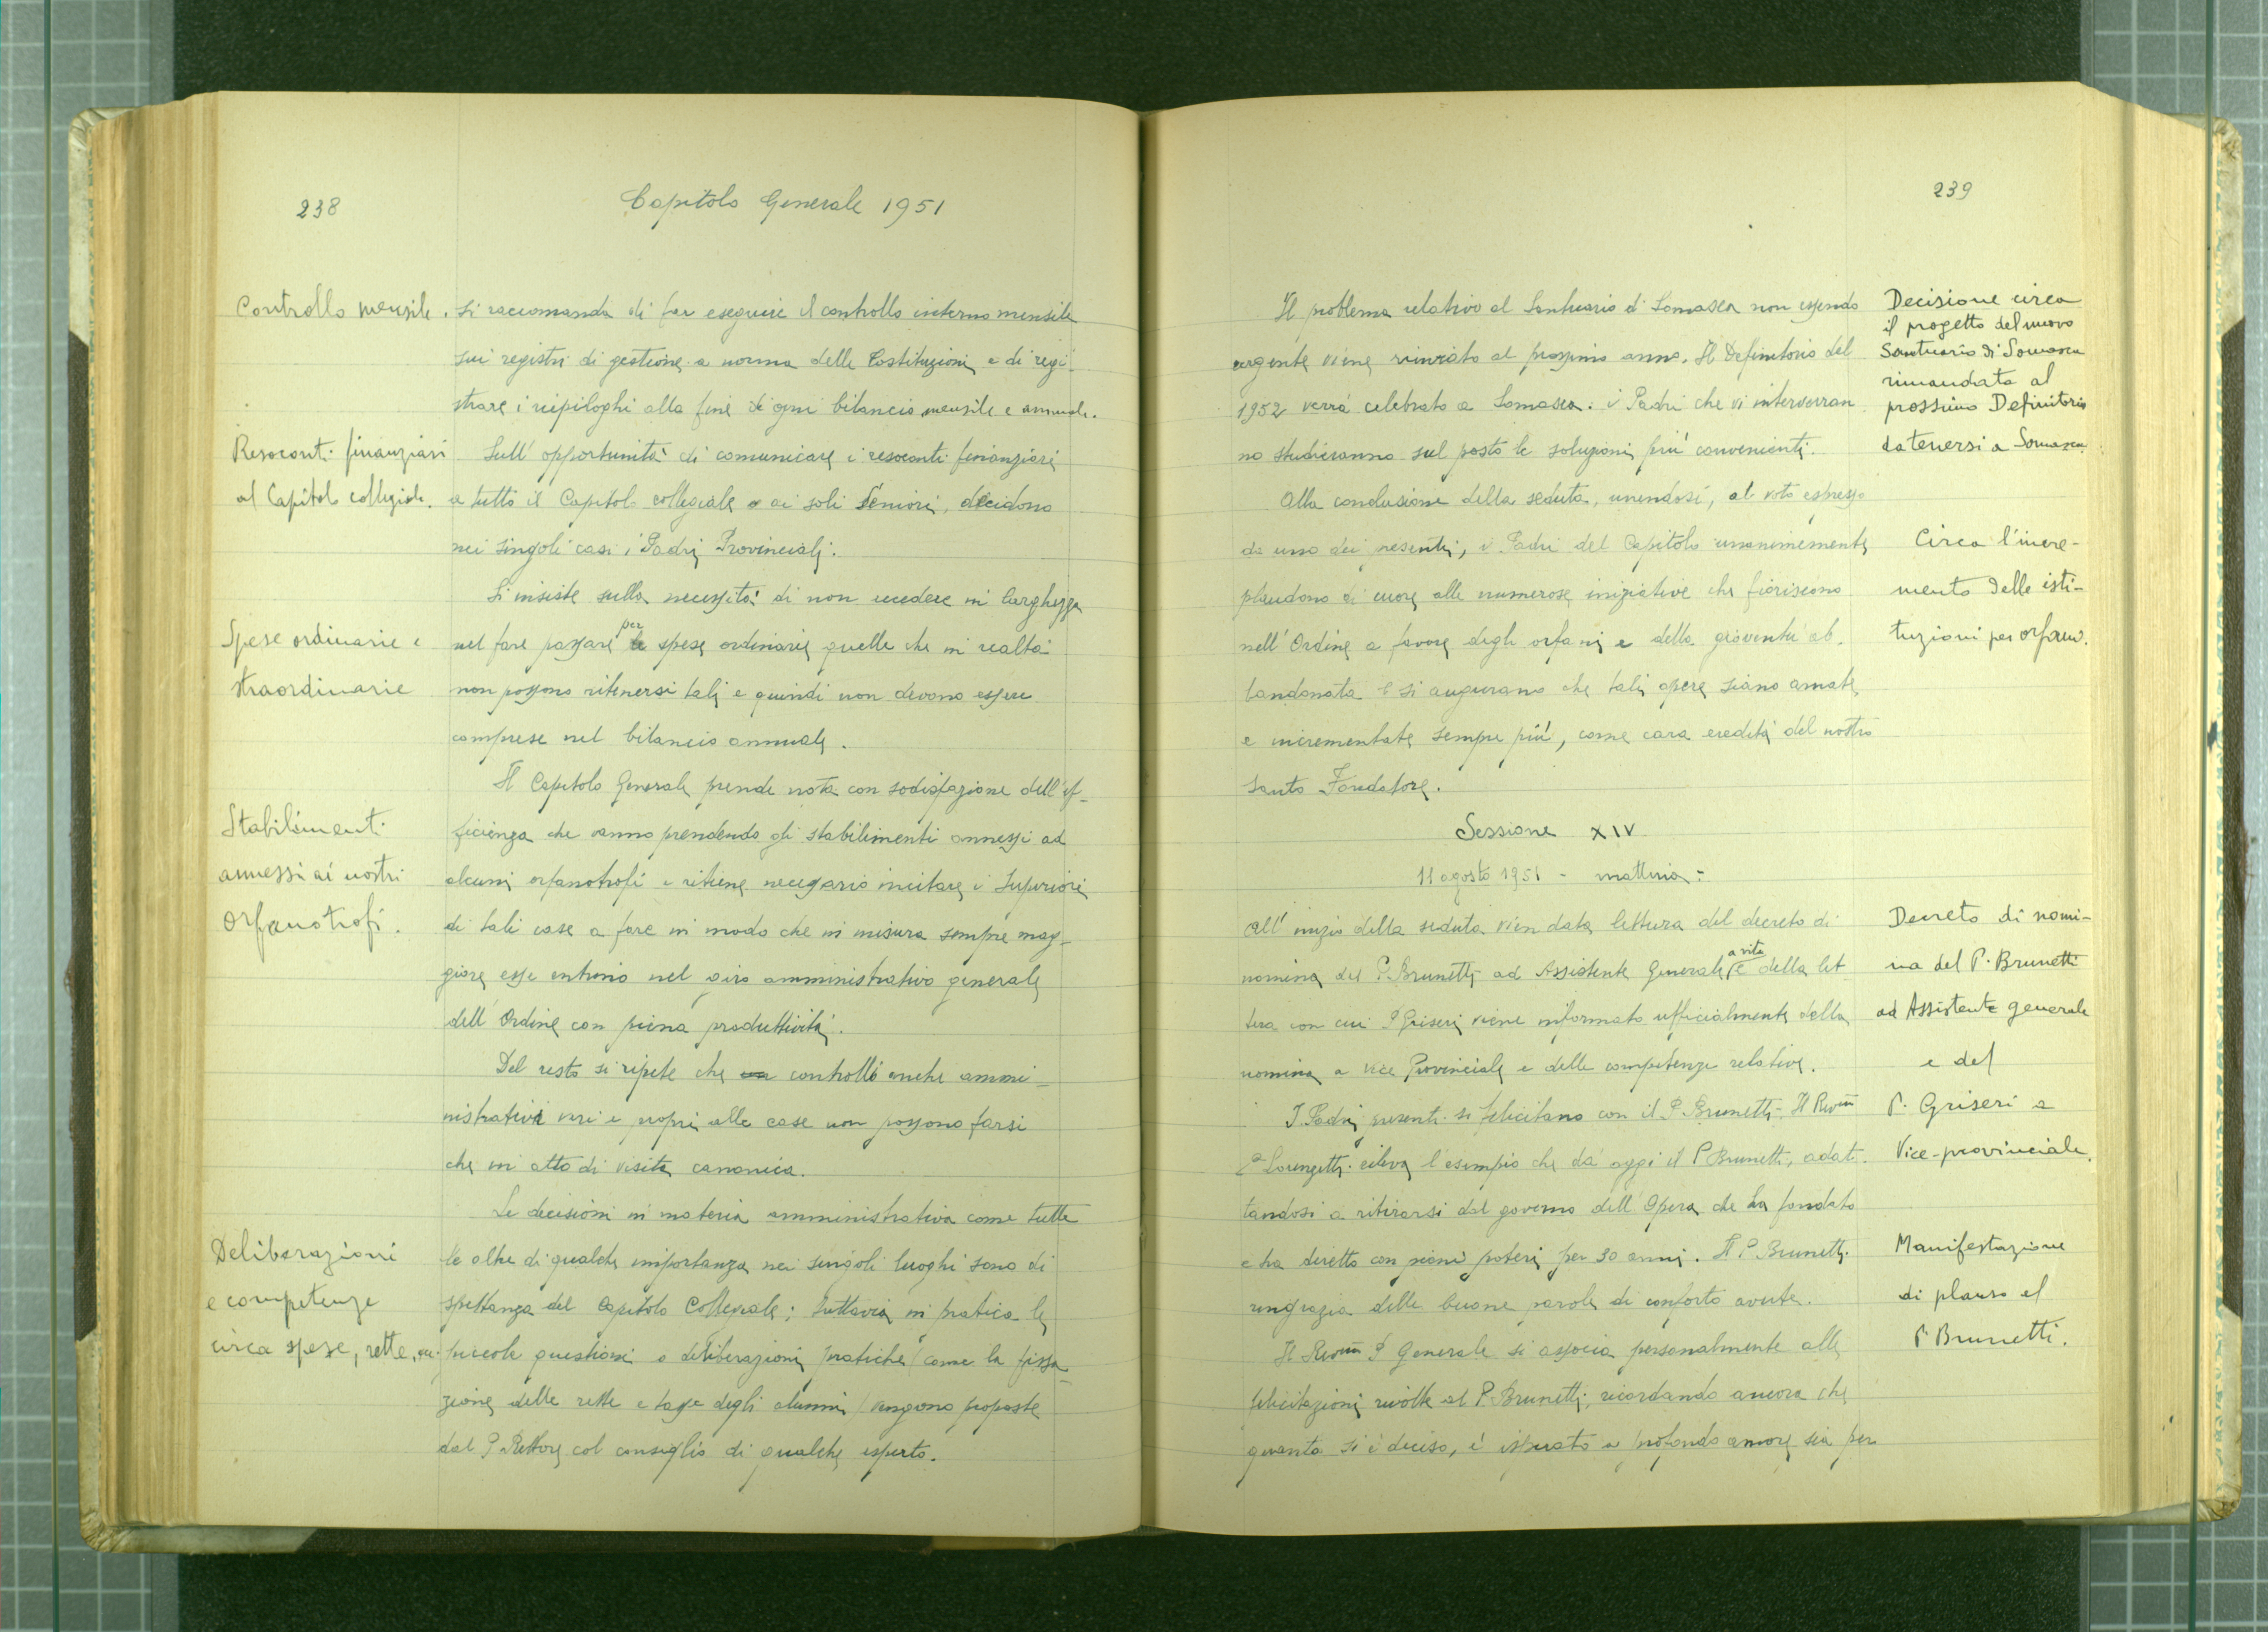 238
Capitolo Generale 1951
Controllo mensile.
Si raccomanda di far eseguire il controllo interno mensile
sui registri di gestione a norma delle Costituzioni e di regi-
strare i riepiloghi alla fine di ogni bilancio mensile e annuale.
Resoconti finanziari
al Capitolo collegiale.
Sull' opportunità di comunicare i resoconti finanziari
a tutto il Capitolo collegiale o ai soli Seniori, decidono
nei singoli casi i Padri Provinciali.
Si insiste sulla necessità di non eccedere in larghezza
Spese ordinarie e
straordinarie
nel fare passare per spese ordinarie quelle che in realtà
non possono ritenersi tali e quindi non devono essere
comprese nel bilancio annuale.
Il Capitolo Generale prende nota con sodisfazione dell'ef-
Stabilimenti
annessi ai nostri
Orfanotrofi.
ficienza che vanno prendendo gli stabilimenti annessi ad
alcuni orfanotrofi e ritiene necessario incitare i Superiori
di tali case a fare in modo che in misura sempre mag-
giore esse entrino nel giro amministrativo generale
dell' Ordine con piena produttività.
Del resto si ripete che controlli anche ammi-
nistrativi veri e propri alle case non possono farsi
che in atto di visita canonica.
Le decisioni in materia amministrativa come tutte
Deliberazioni
e competenze
circa spese, rette, ecc.
le altre di qualche importanza nei singoli luoghi sono di
spettanza del Capitolo Collegiale; tuttavia in pratica le
piccole questioni o deliberazioni pratiche (come la fissa-
zione delle rette e tasse degli alunni) vengono proposte
dal P. Rettore col consiglio di qualche esperto.
239
Il problema relativo al Santuario di Somasca non essendo
urgente viene rinviato al prossimo anno. Il Definitorio del
1952 verrà celebrato a Somasca: i Padri che vi interverran
no studieranno sul posto le soluzioni più convenienti.
Decisione circa
il progetto del nuovo
Santuario di Somasca
rimandata al
prossimo Definitorio
da tenersi a Somasca.
Alla conclusione della seduta, unendosi, al voto espresso
da uno dei presenti, i Padri del Capitolo unanimemente
plaudono di cuore alle numerose iniziative che fioriscono
nell' Ordine a favore degli orfani e della gioventù ab-
bandonata e si augurano che tali opere siano amate
e incrementate sempre più, come cara eredità del nostro
Santo Fondatore.
Circa l'incre-
mento delle isti-
tuzioni per orfani.
Sessione XIV
11 agosto 1951 - mattina:
All' inizio della seduta vien data lettura del decreto di
nomina del P. Brunetti ad Assistente Generale a vita e della let
tera con cui P. Griseri viene informato ufficialmente della
nomina a vice Provinciale e delle competenze relative.
Decreto di nomi-
na del P. Brunetti
ad Assistente generale
e del
P. Griseri a
Vice-provinciale.
I Padri presenti si felicitano con il P. Brunetti. Il Rev.mo
P. Lorenzetti rileva l'esempio che dà oggi il P. Brunetti, adat-
tandosi a ritirarsi dal governo dell' Opera che ha fondato
e ha diretto con pieni poteri per 30 anni. Il P. Brunetti
ringrazia delle buone parole di conforto avute.
Manifestazione
di plauso al
P. Brunetti.
Il Rev.mo P. Generale si associa personalmente alle
felicitazioni rivolte al P. Brunetti, ricordando ancora che
quanto si è deciso, è ispirato a profondo amore sia per